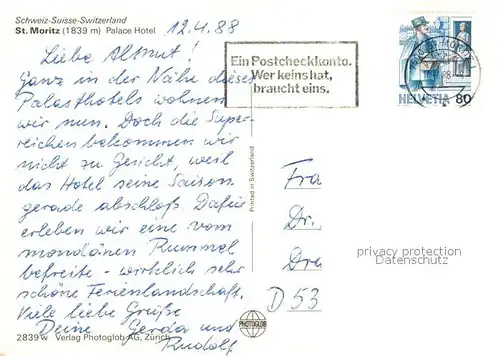 Schweiz-Suisse-Switzerland
St. Moritz (1839 m) Palace Hotel
12.4.88
Liebe Almut!
Ganz in der Nähe dieses
Palasthotels wohnen
wir nun. Doch die Super-
reichen bekommen wir
nicht zu Gesicht, weil
das Hotel seine Saison
gerade abschloß. Dafür
erleben wir eine vom
mondänen Rummel
befreite - wirklich sehr
schöne Ferienlandschaft.
Viele liebe Grüße
Deine Gerda und
Rudolf
2839 w Verlag Photoglob AG, Zürich
Printed in Switzerland
Ein Postcheckkonto.
Wer keins hat,
braucht eins.
HELVETIA 80
Fra
Dr.
Dra
D 53
privacy protection
Datenschutz
PHOTOGLOB